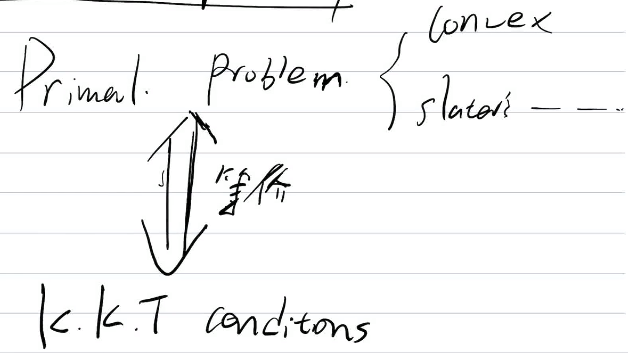 Primal. problem. { convex
slater's — — ...
等价
K.K.T conditons